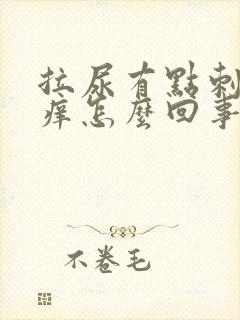 拉尿有點刺
癢怎麼回事
不卷毛